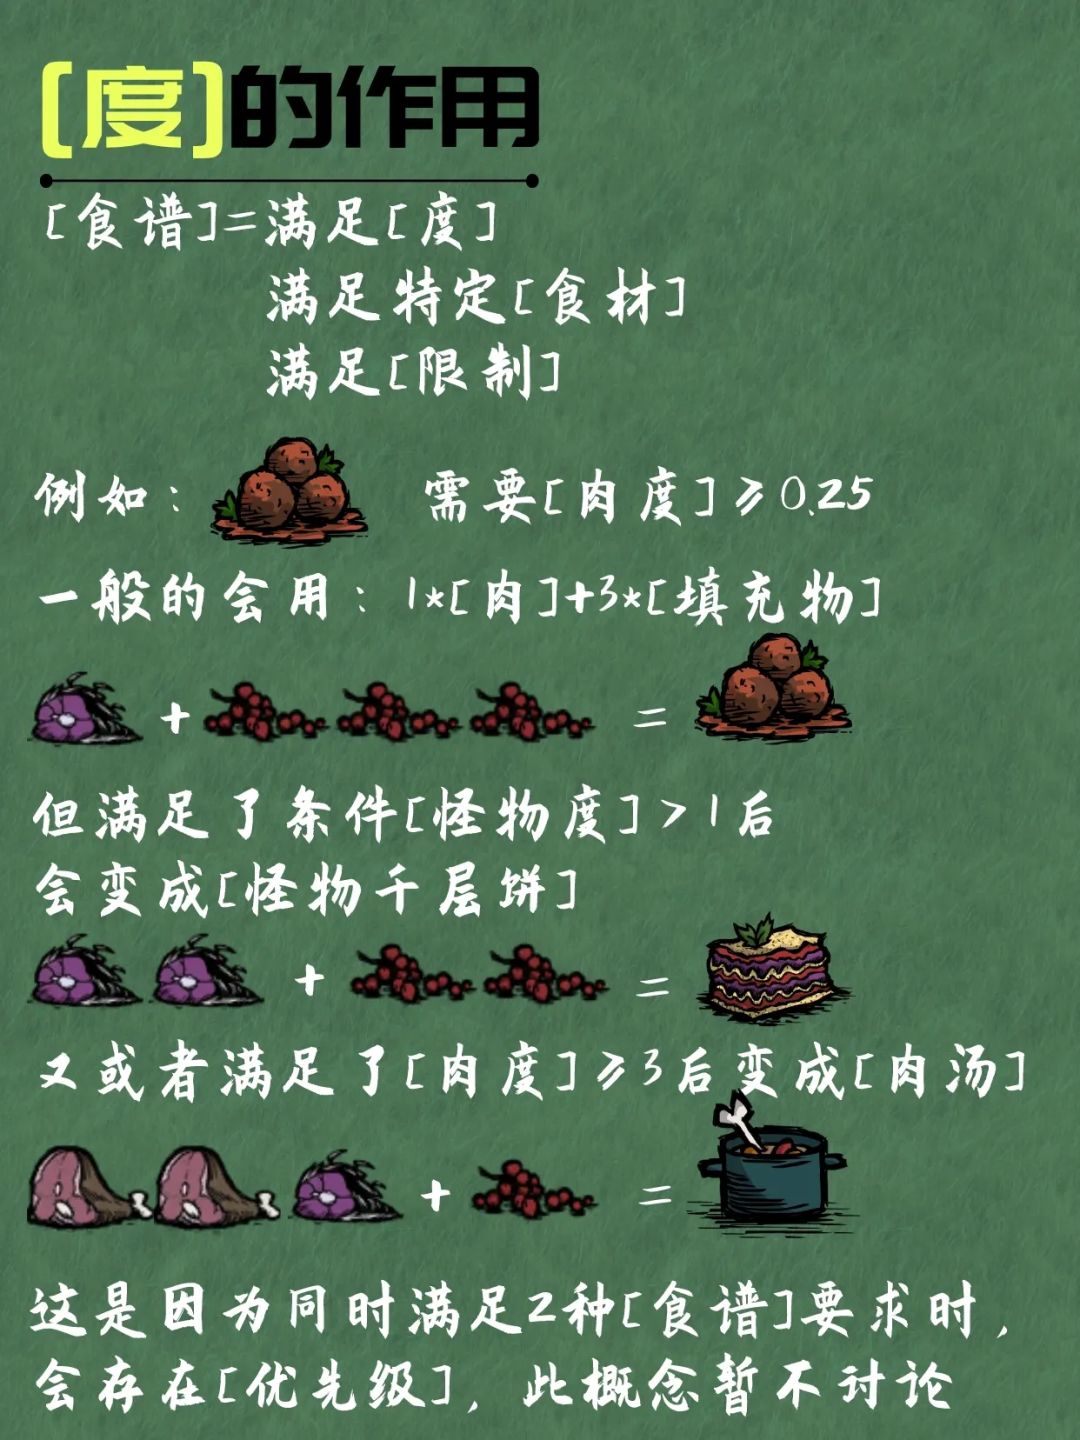 [度]的作用
[食谱]=满足[度]
满足特定[食材]
满足[限制]
例如： 需要[肉度]≥0.25
一般的会用：1*[肉]+3*[填充物]
+ =
但满足了条件[怪物度]>1后
会变成[怪物千层饼]
+ =
又或者满足了[肉度]≥3后变成[肉汤]
+ =
这是因为同时满足2种[食谱]要求时，
会存在[优先级]，此概念暂不讨论